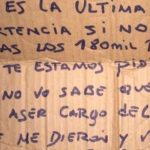 ES LA ULTIMA
RTENCIA SI NO
AS LOS 180MIL
TE ESTAMOS PID
NO VO SABE QUE
ASER CARGO DE L
E ME DIERON Y V